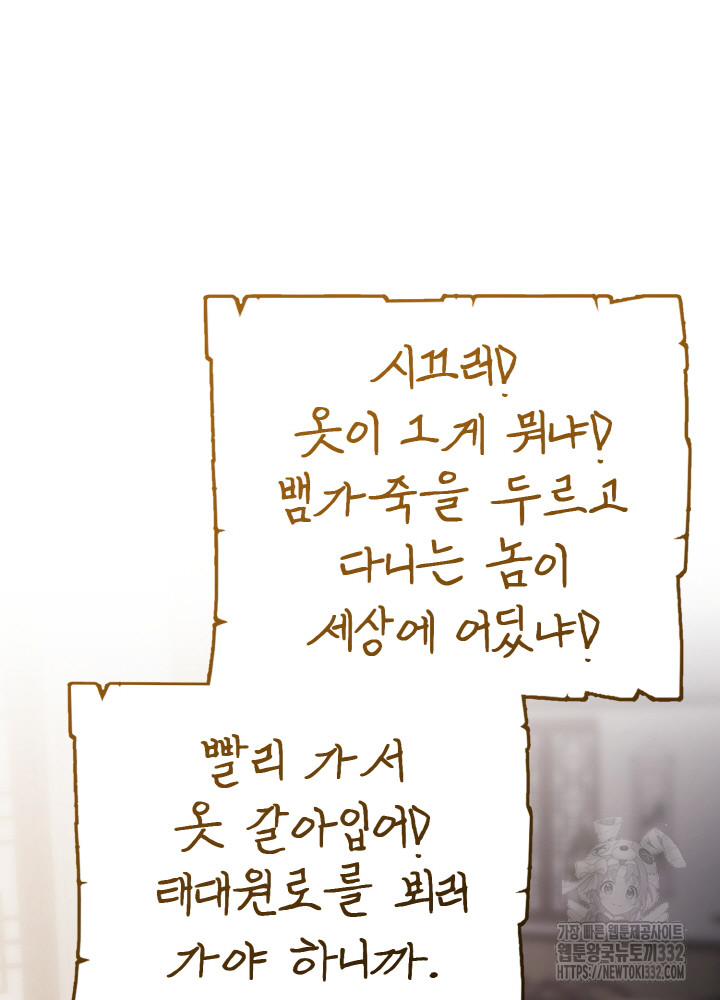 시끄러!
옷이 그게 뭐냐!
뱀가죽을 두르고
다니는 놈이
세상에 어딨냐!
빨리 가서
옷 갈아입어!
태대원로를 뵈러
가야 하니까.
가장 빠른 웹툰제공사이트
웹툰왕국뉴토끼332
HTTPS://NEWTOKI332.COM